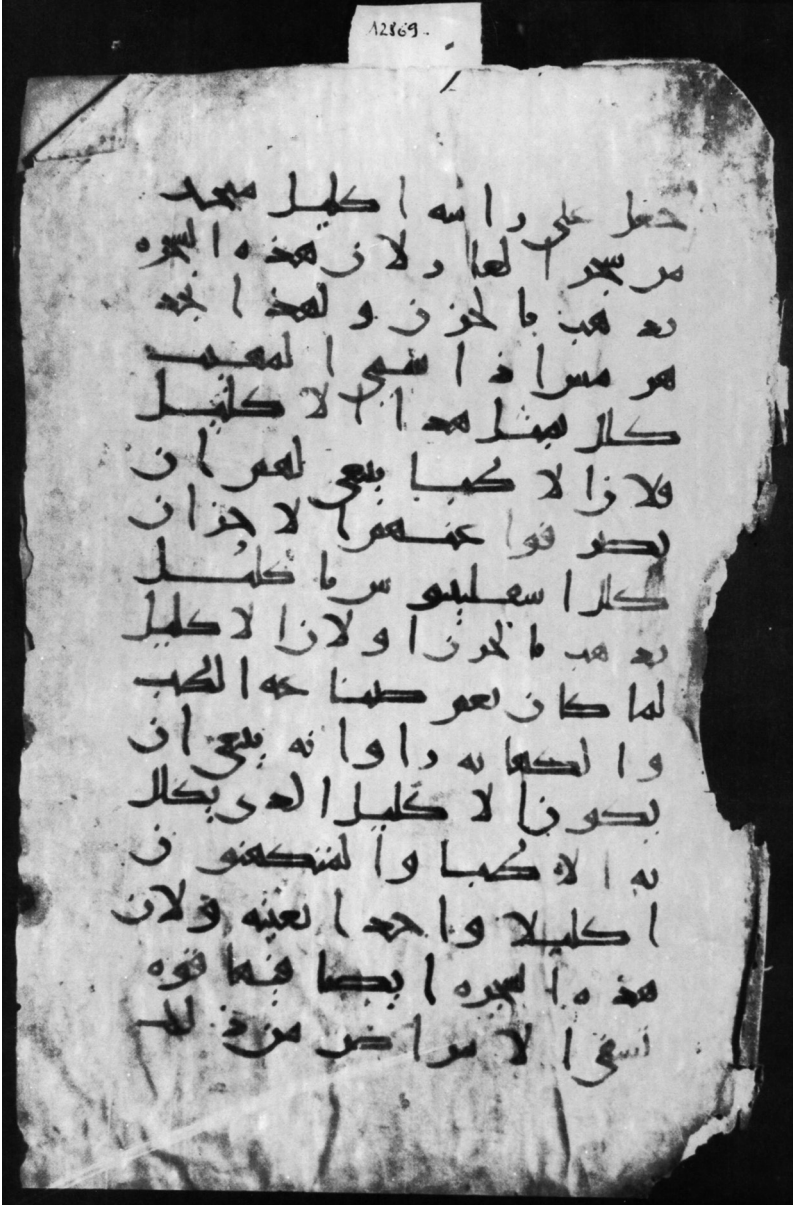 12869
جعل على راسه اكليل متخذ
من شجر الغار لان هذه الشجره
تذهب بالحزن ولهذا نجد
هرمس اذا سمي المهيب
كلل بمثل هذا الاكليل
فلان الاطبا ينبغي لهم ان
يصرفوا عنهم الاحزان
كلل اسقليبيوس باكليل
يذهب بالحزن او لان الاكليل
لما كان يعم صناعه الطب
والكهانه راوا نه ينبغي ان
يكون الاكليل الذي يكلل
به الاطبا والمتكهنون
اكليلا واحدا بعينه ولان
هذه الشجره ايضا فيها قوه
تشفي الامراض من ذلك